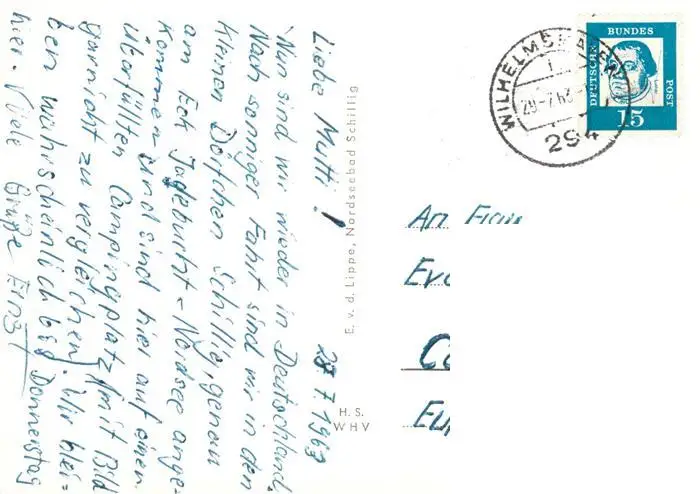 Liebe Mutti!
28.7.1963
Nun sind wir wieder in Deutschland.
Nach sonniger Fahrt sind wir in den
kleinen Dörfchen Schillig, genau
am Eck Jadebucht - Nordsee ange-
kommen und sind hier auf einen
überfüllten Campingplatz (mit Bild
garnicht zu vergleichen). Wir blei=
ben wahrscheinlich bis Donnerstag
hier. Viele Grüße Ernst
E. v. d. Lippe, Nordseebad Schillig
H. S.
WHV
WILHELMSHAVEN
29-7.63
294
DEUTSCHE BUNDES POST
15
An Frau